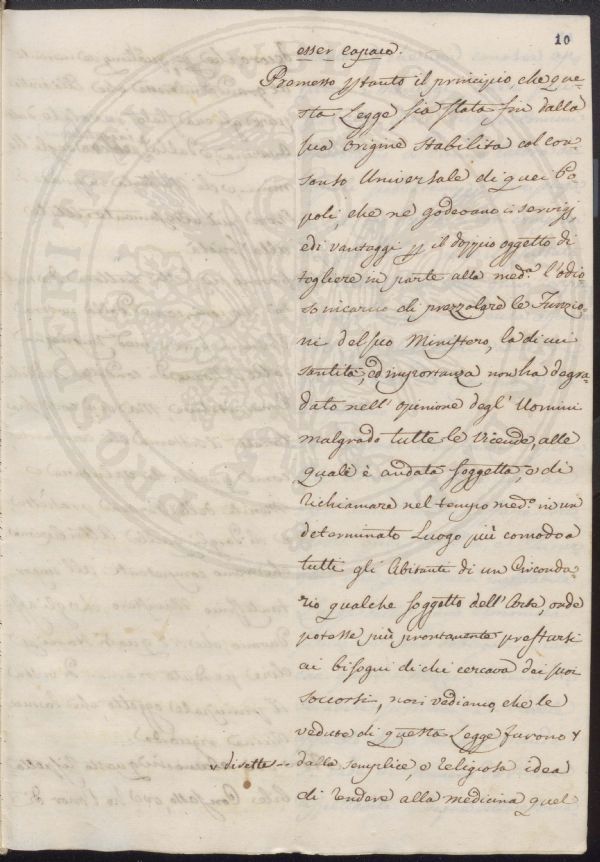 10
esser capace.
Promesso ptanto il principio, che que=
sta Legge sia stata fin dalla
sua origine stabilita col con=
senso Universale di quei Po=
poli, che ne godevano i servigj,
e di vantaggi p il doppio oggetto di
togliere in parte alla med.a l'odio
so incarico di prezzolare le Funzio=
ni del suo Ministero, la di cui
santità, ed importanza non ha degra=
dato nell' opinione degl' Uomini
malgrado tutte le vicende, alle
quali è andata soggetta, e di
richiamare nel tempo med.o in un
determinato Luogo più comodo a
tutti gli Abitanti di un Circonda=
rio qualche soggetto dell'Arte, onde
potesse più prontamente prestarsi
ai bisogni di chi cercava dei suoi
soccorsi, noi vediamo, che le
vedute di questa Legge furono v
v dirette dalla semplice, e religiosa idea
di rendere alla medicina quel